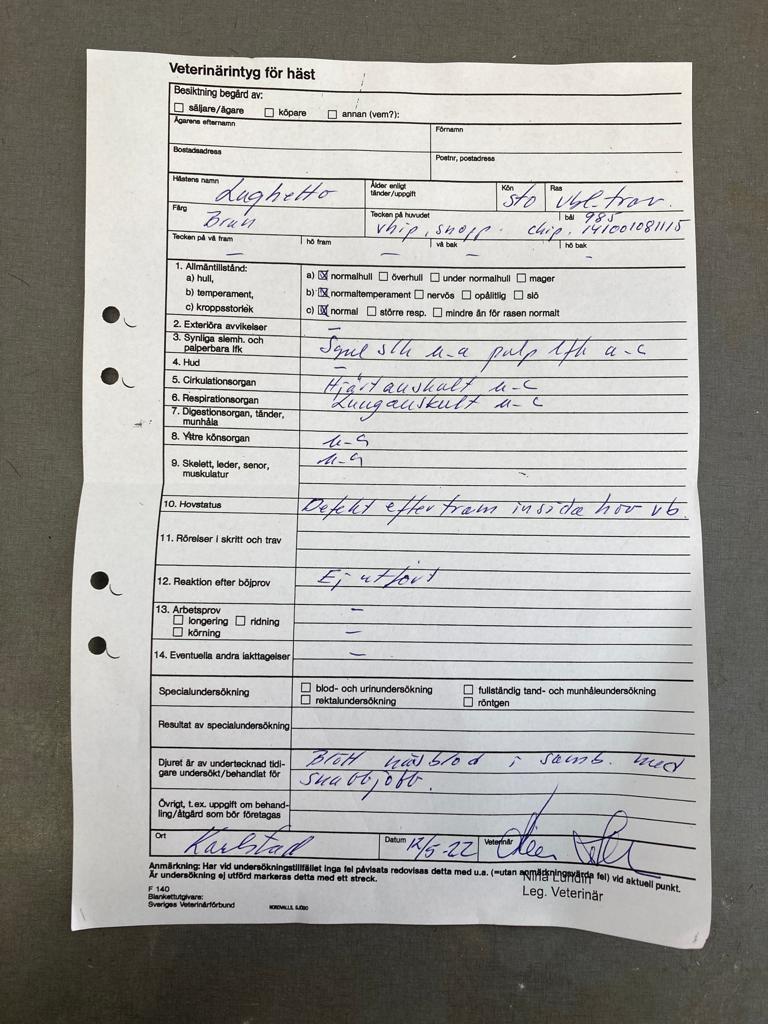 Veterinärintyg för häst
Besiktning begärd av:
☐ säljare/ägare ☐ köpare ☐ annan (vem?):
Ägarens efternamn Förnamn
Bostadsadress Postnr, postadress
Hästens namn Ålder enligt tänder/uppgift Kön Ras
Lughetto sto vbl-trav.
Färg Tecken på huvudet bål
Brun vhip, snopp. chip. 985
141001081115
Tecken på vä fram hö fram vä bak hö bak
– – – –
1. Allmäntillstånd:
a) hull, a) ☒ normalhull ☐ överhull ☐ under normalhull ☐ mager
b) temperament, b) ☒ normaltemperament ☐ nervös ☐ opålitlig ☐ slö
c) kroppsstorlek c) ☒ normal ☐ större resp. ☐ mindre än för rasen normalt
2. Exteriöra avvikelser –
3. Synliga slemh. och palperbara lfk slh u-a palp lfk u-a
4. Hud –
5. Cirkulationsorgan Hjärtauskult u-a
6. Respirationsorgan Lungauskult u-a
7. Digestionsorgan, tänder, munhåla
8. Yttre könsorgan u-a
9. Skelett, leder, senor, muskulatur u-a
10. Hovstatus Defekt efter tram insida hov vb.
11. Rörelser i skritt och trav
12. Reaktion efter böjprov Ej utfört
13. Arbetsprov –
☐ longering ☐ ridning
☐ körning –
14. Eventuella andra iakttagelser –
Specialundersökning ☐ blod- och urinundersökning ☐ fullständig tand- och munhåleundersökning
☐ rektalundersökning ☐ röntgen
Resultat av specialundersökning
Djuret är av undertecknad tidigare undersökt/behandlat för näsblod i samb. med
snabbjobb.
Övrigt, t.ex. uppgift om behandling/åtgärd som bör företagas
Ort Karlstad Datum 12/5-22 Veterinär
Anmärkning: Har vid undersökningstillfället inga fel påvisats redovisas detta med u.a. (=utan anmärkningsvärda fel) vid aktuell punkt.
Är undersökning ej utförd markeras detta med ett streck.
Nina Lundin
Leg. Veterinär
F 140
Blankettutgivare:
Sveriges Veterinärförbund NORDVALLS, SJÖBO